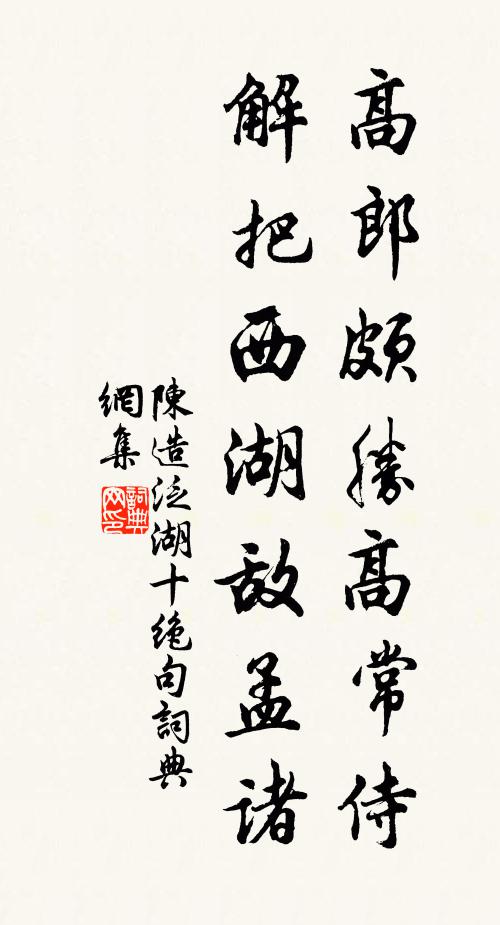 高郎頗勝高常侍
解把西湖敌孟诸
陳造泛湖十绝句詞典
網集
詞典网印